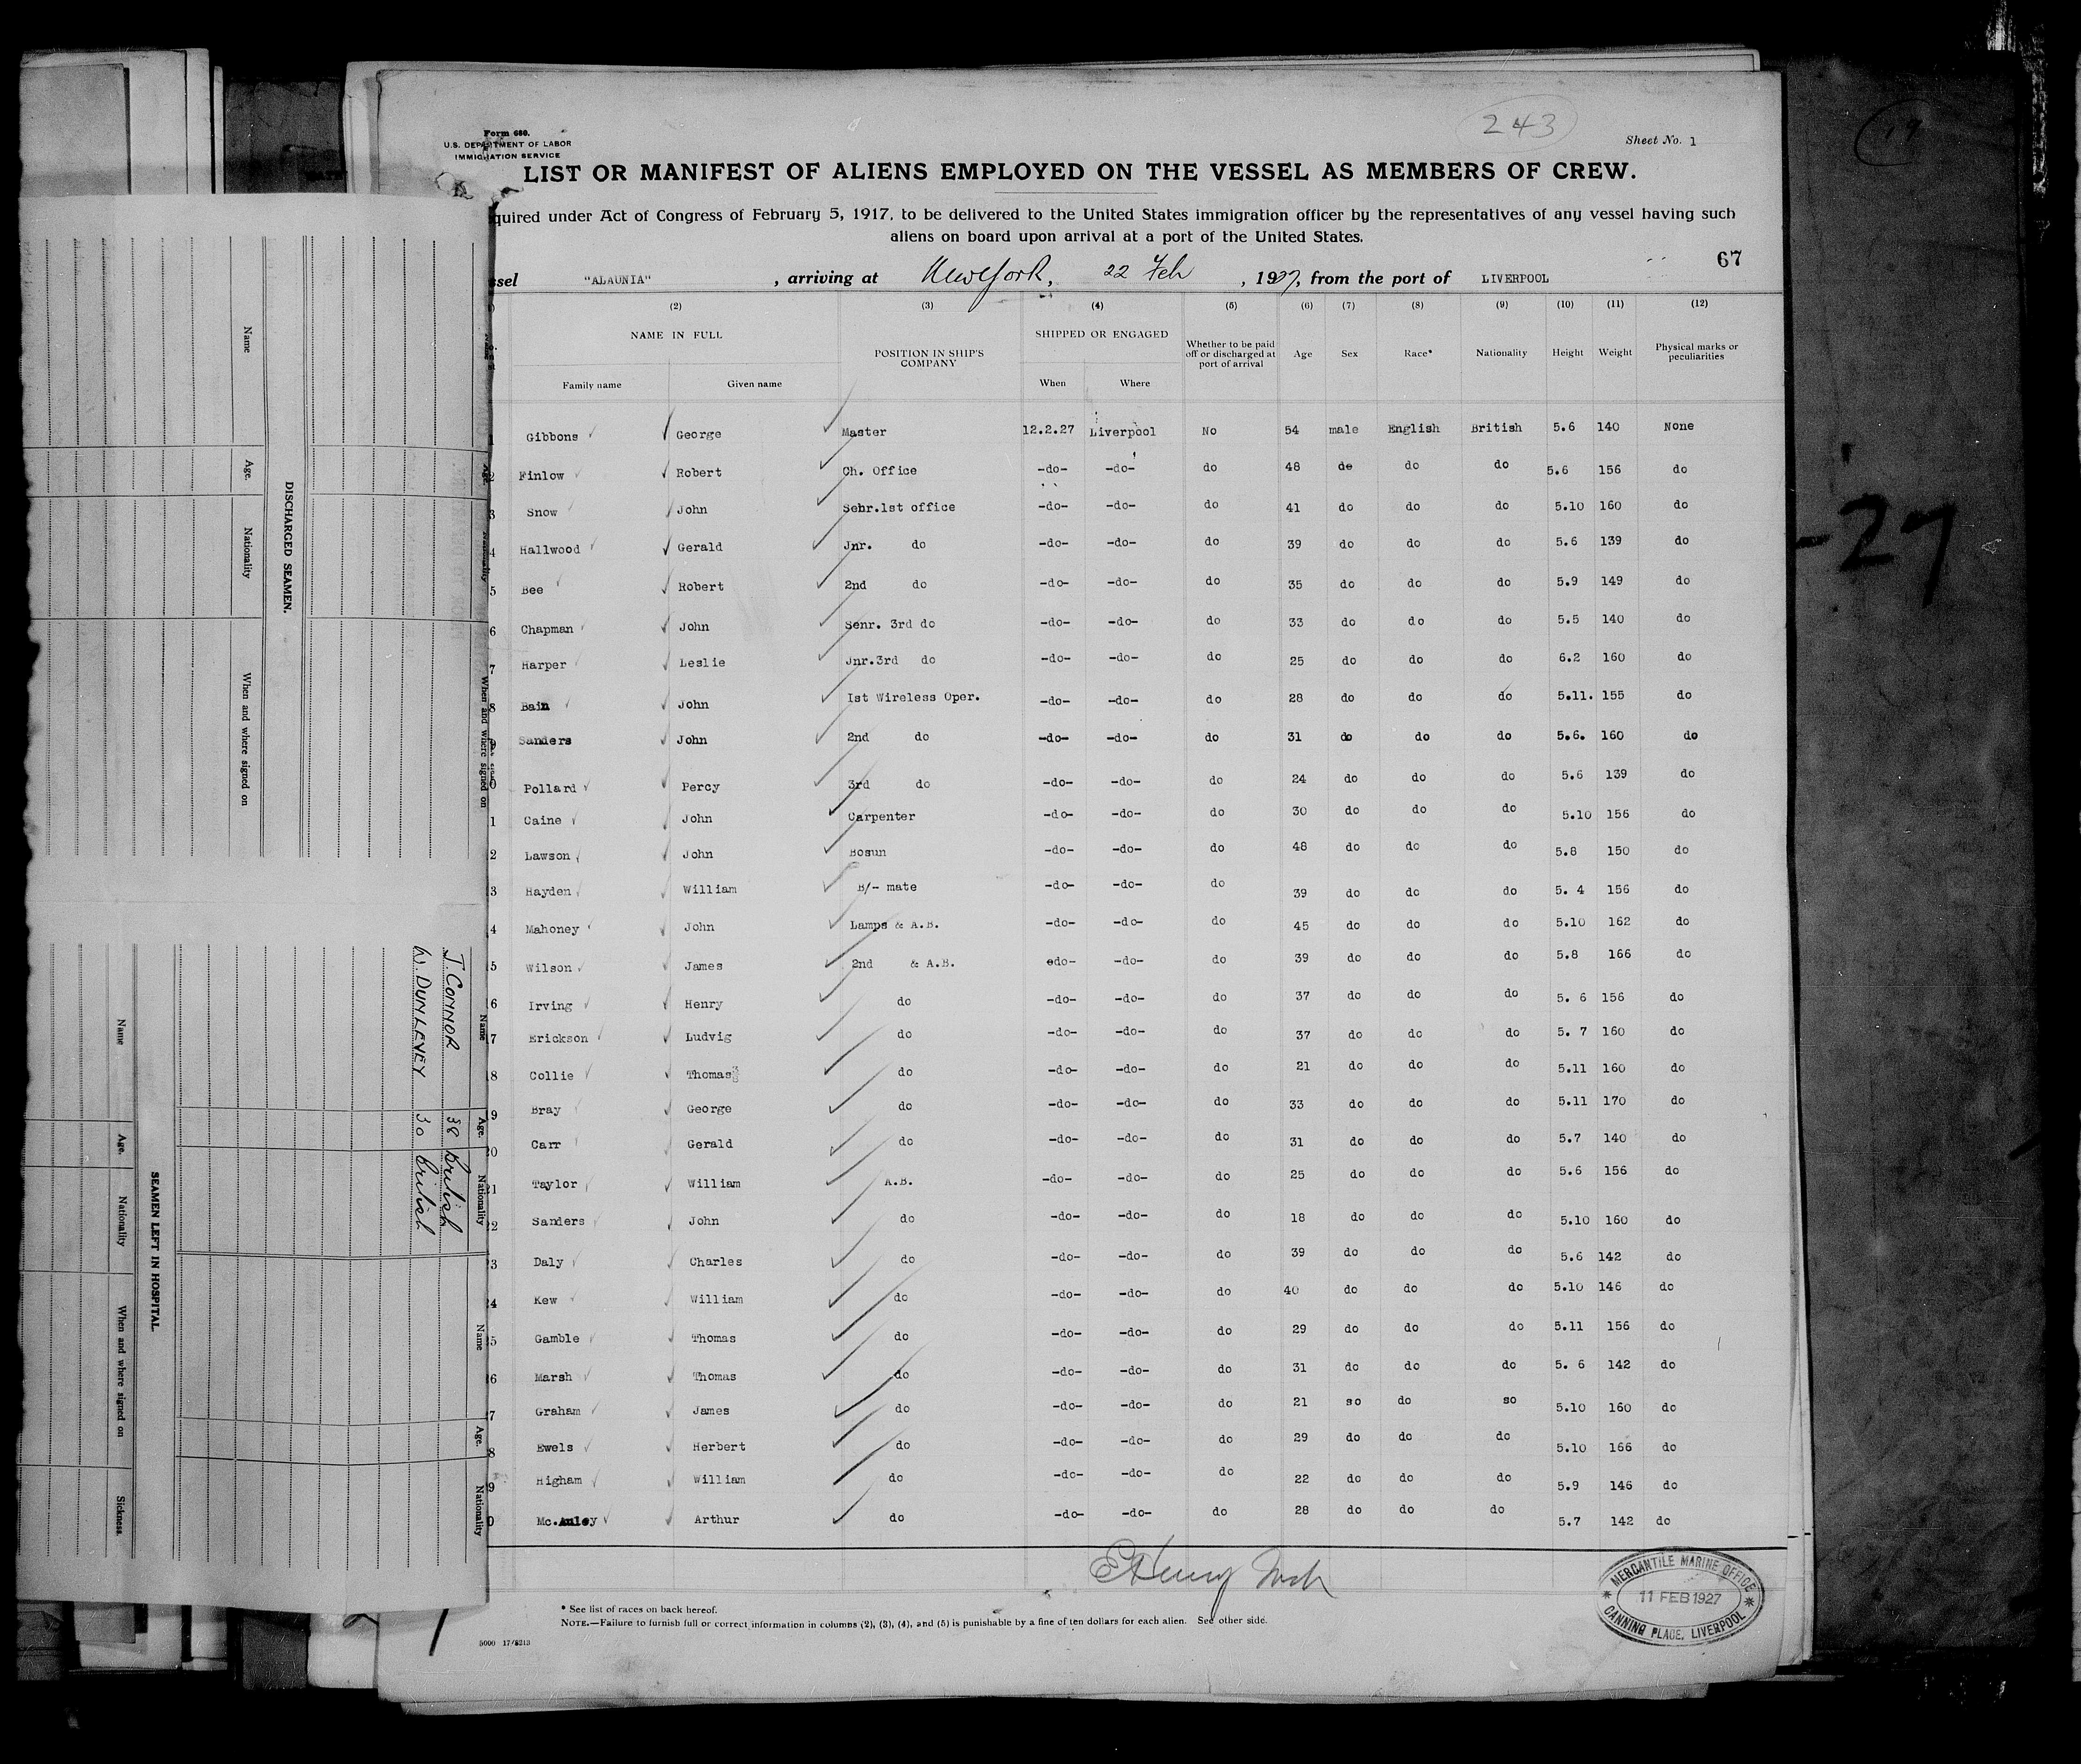 Form 680.
U.S. DEPARTMENT OF LABOR
IMMIGRATION SERVICE
243
Sheet No. 1
LIST OR MANIFEST OF ALIENS EMPLOYED ON THE VESSEL AS MEMBERS OF CREW.
quired under Act of Congress of February 5, 1917, to be delivered to the United States immigration officer by the representatives of any vessel having such
aliens on board upon arrival at a port of the United States.
67
ssel "ALAUNIA", arriving at New York, 22 Feb, 1927, from the port of LIVERPOOL
(2) (3) (4) (5) (6) (7) (8) (9) (10) (11) (12)
NAME IN FULL POSITION IN SHIP'S COMPANY SHIPPED OR ENGAGED Whether to be paid off or discharged at port of arrival Age Sex Race* Nationality Height Weight Physical marks or peculiarities
Family name Given name When Where
1 Gibbons George Master 12.2.27 Liverpool No 54 male English British 5.6 140 None
2 Finlow Robert Ch. Office -do- -do- do 48 do do do 5.6 156 do
3 Snow John Senr.1st office -do- -do- do 41 do do do 5.10 160 do
4 Hallwood Gerald Jnr. do -do- -do- do 39 do do do 5.6 139 do
5 Bee Robert 2nd do -do- -do- do 35 do do do 5.9 149 do
6 Chapman John Senr. 3rd do -do- -do- do 33 do do do 5.5 140 do
7 Harper Leslie Jnr.3rd do -do- -do- do 25 do do do 6.2 160 do
8 Bain John Ist Wireless Oper. -do- -do- do 28 do do do 5.11. 155 do
9 Sanders John 2nd do -do- -do- do 31 do do do 5.6. 160 do
0 Pollard Percy 3rd do -do- -do- do 24 do do do 5.6 139 do
1 Caine John Carpenter -do- -do- do 30 do do do 5.10 156 do
2 Lawson John Bosun -do- -do- do 48 do do do 5.8 150 do
3 Hayden William B/- mate -do- -do- do 39 do do do 5. 4 156 do
4 Mahoney John Lamps & A.B. -do- -do- do 45 do do do 5.10 162 do
5 Wilson James 2nd & A.B. edo- -do- do 39 do do do 5.8 166 do
6 Irving Henry do -do- -do- do 37 do do do 5. 6 156 do
7 Erickson Ludvig do -do- -do- do 37 do do do 5. 7 160 do
8 Collie Thomas do -do- -do- do 21 do do do 5.11 160 do
9 Bray George do -do- -do- do 33 do do do 5.11 170 do
20 Carr Gerald do -do- -do- do 31 do do do 5.7 140 do
21 Taylor William A.B. -do- -do- do 25 do do do 5.6 156 do
2 Sanders John do -do- -do- do 18 do do do 5.10 160 do
3 Daly Charles do -do- -do- do 39 do do do 5.6 142 do
24 Kew William do -do- -do- do 40 do do do 5.10 146 do
5 Gamble Thomas do -do- -do- do 29 do do do 5.11 156 do
6 Marsh Thomas do -do- -do- do 31 do do do 5. 6 142 do
7 Graham James do -do- -do- do 21 so do so 5.10 160 do
8 Ewels Herbert do -do- -do- do 29 do do do 5.10 166 do
9 Higham William do -do- -do- do 22 do do do 5.9 146 do
0 Mc.Auley Arthur do -do- -do- do 28 do do do 5.7 142 do
MERCANTILE MARINE OFFICE
11 FEB 1927
CANNING PLACE, LIVERPOOL
* See list of races on back hereof.
NOTE.—Failure to furnish full or correct information in columns (2), (3), (4), and (5) is punishable by a fine of ten dollars for each alien. See other side.
5000 17/8213
Name Age. Nationality When and where signed on
DISCHARGED SEAMEN.
Name Age. Nationality When and where signed on
Name Age. Nationality
J. CONNOR 38 British
W. DUNLEVEY 30 British
Name Age. Nationality
SEAMEN LEFT IN HOSPITAL
Name Age. Nationality When and where signed on Sickness
-27